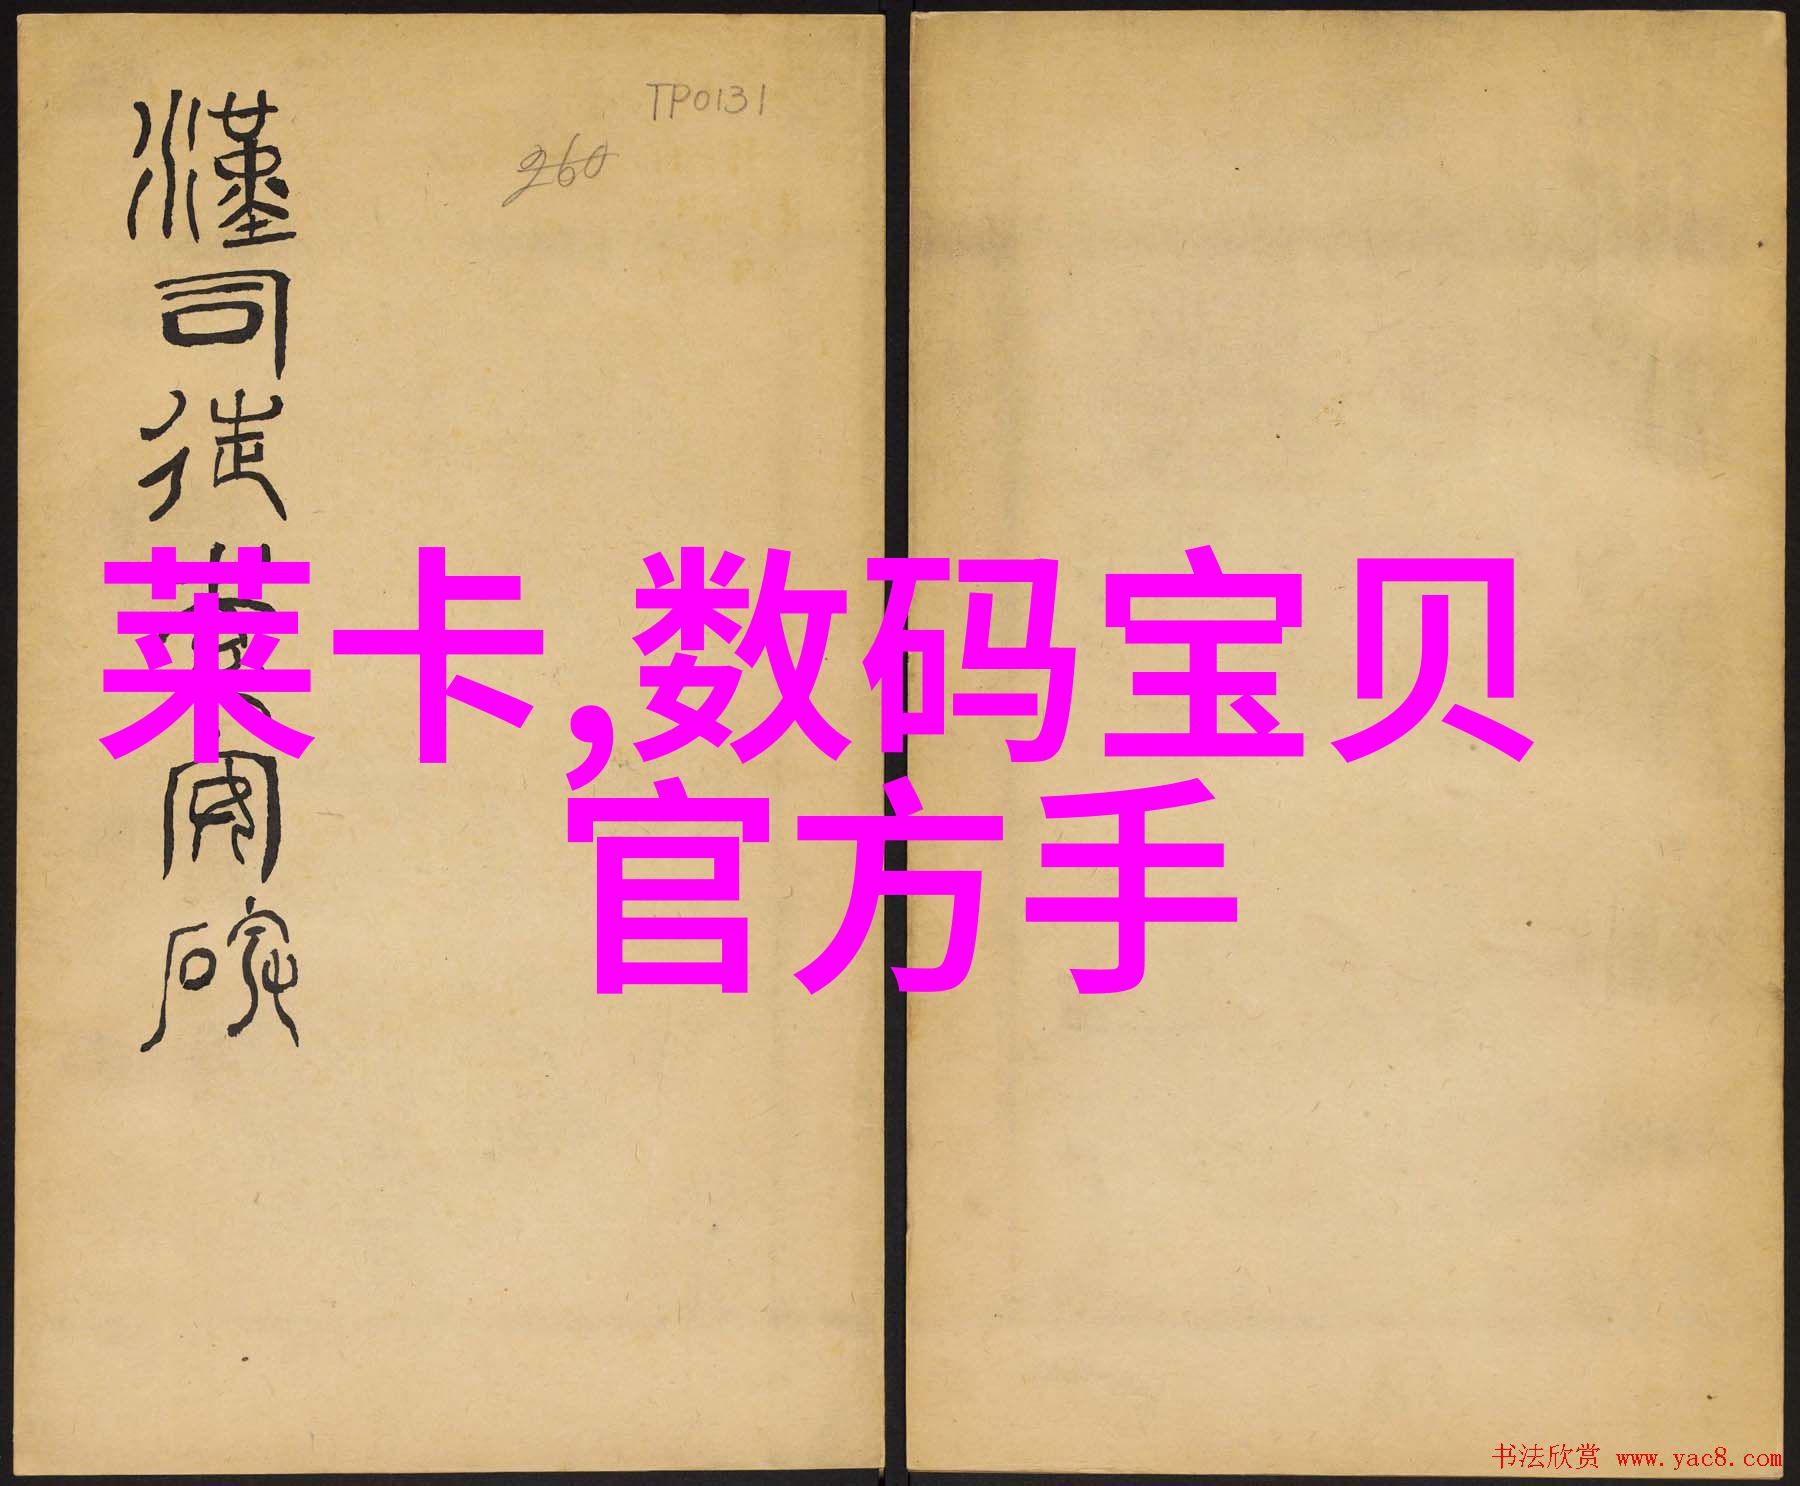 TP0131
260
漢司徒袁安碑
莱卡,数码宝贝
官方手
书法欣赏 www.yac8.com